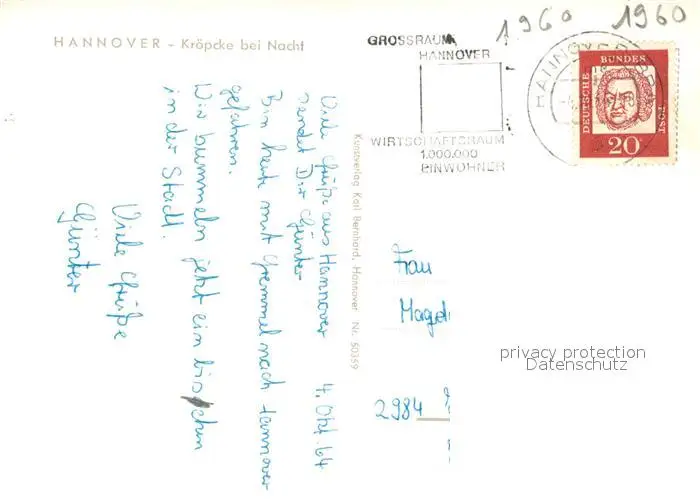 1960 1960
HANNOVER – Kröpcke bei Nacht
GROSSRAUM
HANNOVER
WIRTSCHAFTSRAUM
1.000.000
EINWOHNER
HANNOVER
DEUTSCHE BUNDESPOST
20
Viele Grüße aus Hannover 4. Okt. 64
sendet Dir Günter
Bin heute mit nach Hannover
gefahren.
Wir bummeln jetzt ein bischen
in der Stadt.
Viele Grüße
Günter
Kunstverlag Karl Bernhard, Hannover Nr. 50359
Frau
2984
privacy protection
Datenschutz